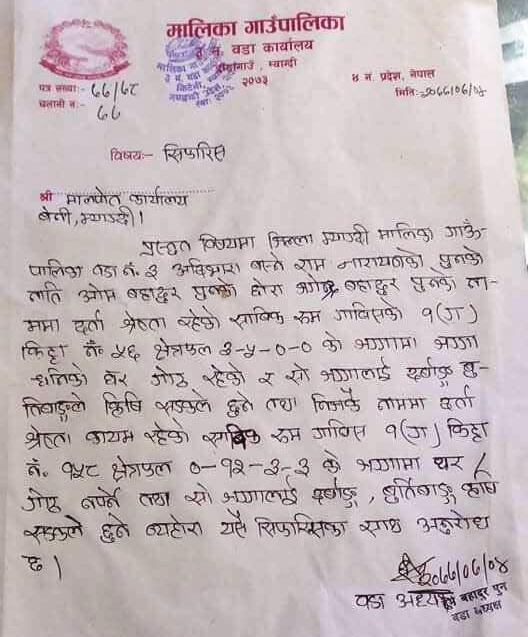 मालिका गाउँपालिका
३ नं. वडा कार्यालय
म्याग्दी
२०७३
४ नं. प्रदेश, नेपाल
पत्र संख्या :- ७७/७८
चलानी नं. :- ७७
मिति:- २०७७/०७/०४
विषय:- सिफारिस
श्री मालपोत कार्यालय
बेनी, म्याग्दी।
प्रस्तुत विषयमा जिल्ला म्याग्दी मालिका गाउँ-
पालिका वडा नं. ३ बस्ने राम नारायणको पुनको
नाति ओम बहादुर पुनको छोरा बहादुर पुनको ना-
ममा दर्ता श्रेस्ता रहेको साविक रुम गाविसको १(ग)
किता नं. ५६ क्षेत्रफल ३-५-०-० को जग्गामा जग्गा
धनिको घर गोठ रहेको र सो जग्गालाई दर्वाङ बु-
र्तिबाङले क्रिषि सडकले छुने तथा निजकै नाममा दर्ता
श्रेस्ता कायम रहेको साविक रुम गाविस १(ग) किता
नं. १५८ क्षेत्रफल ०-१२-३-३ को जग्गामा घर /
गोठ नपर्ने तथा सो जग्गालाई दर्वाङ, बुर्तिबाङ क्रषि
सडकले छुने व्यहोरा यहि सिफारिसका साथ अनुरोध
छ।
२०७७/०७/०४
वडा अध्यक्ष
बहादुर पुन
वडा अध्यक्ष